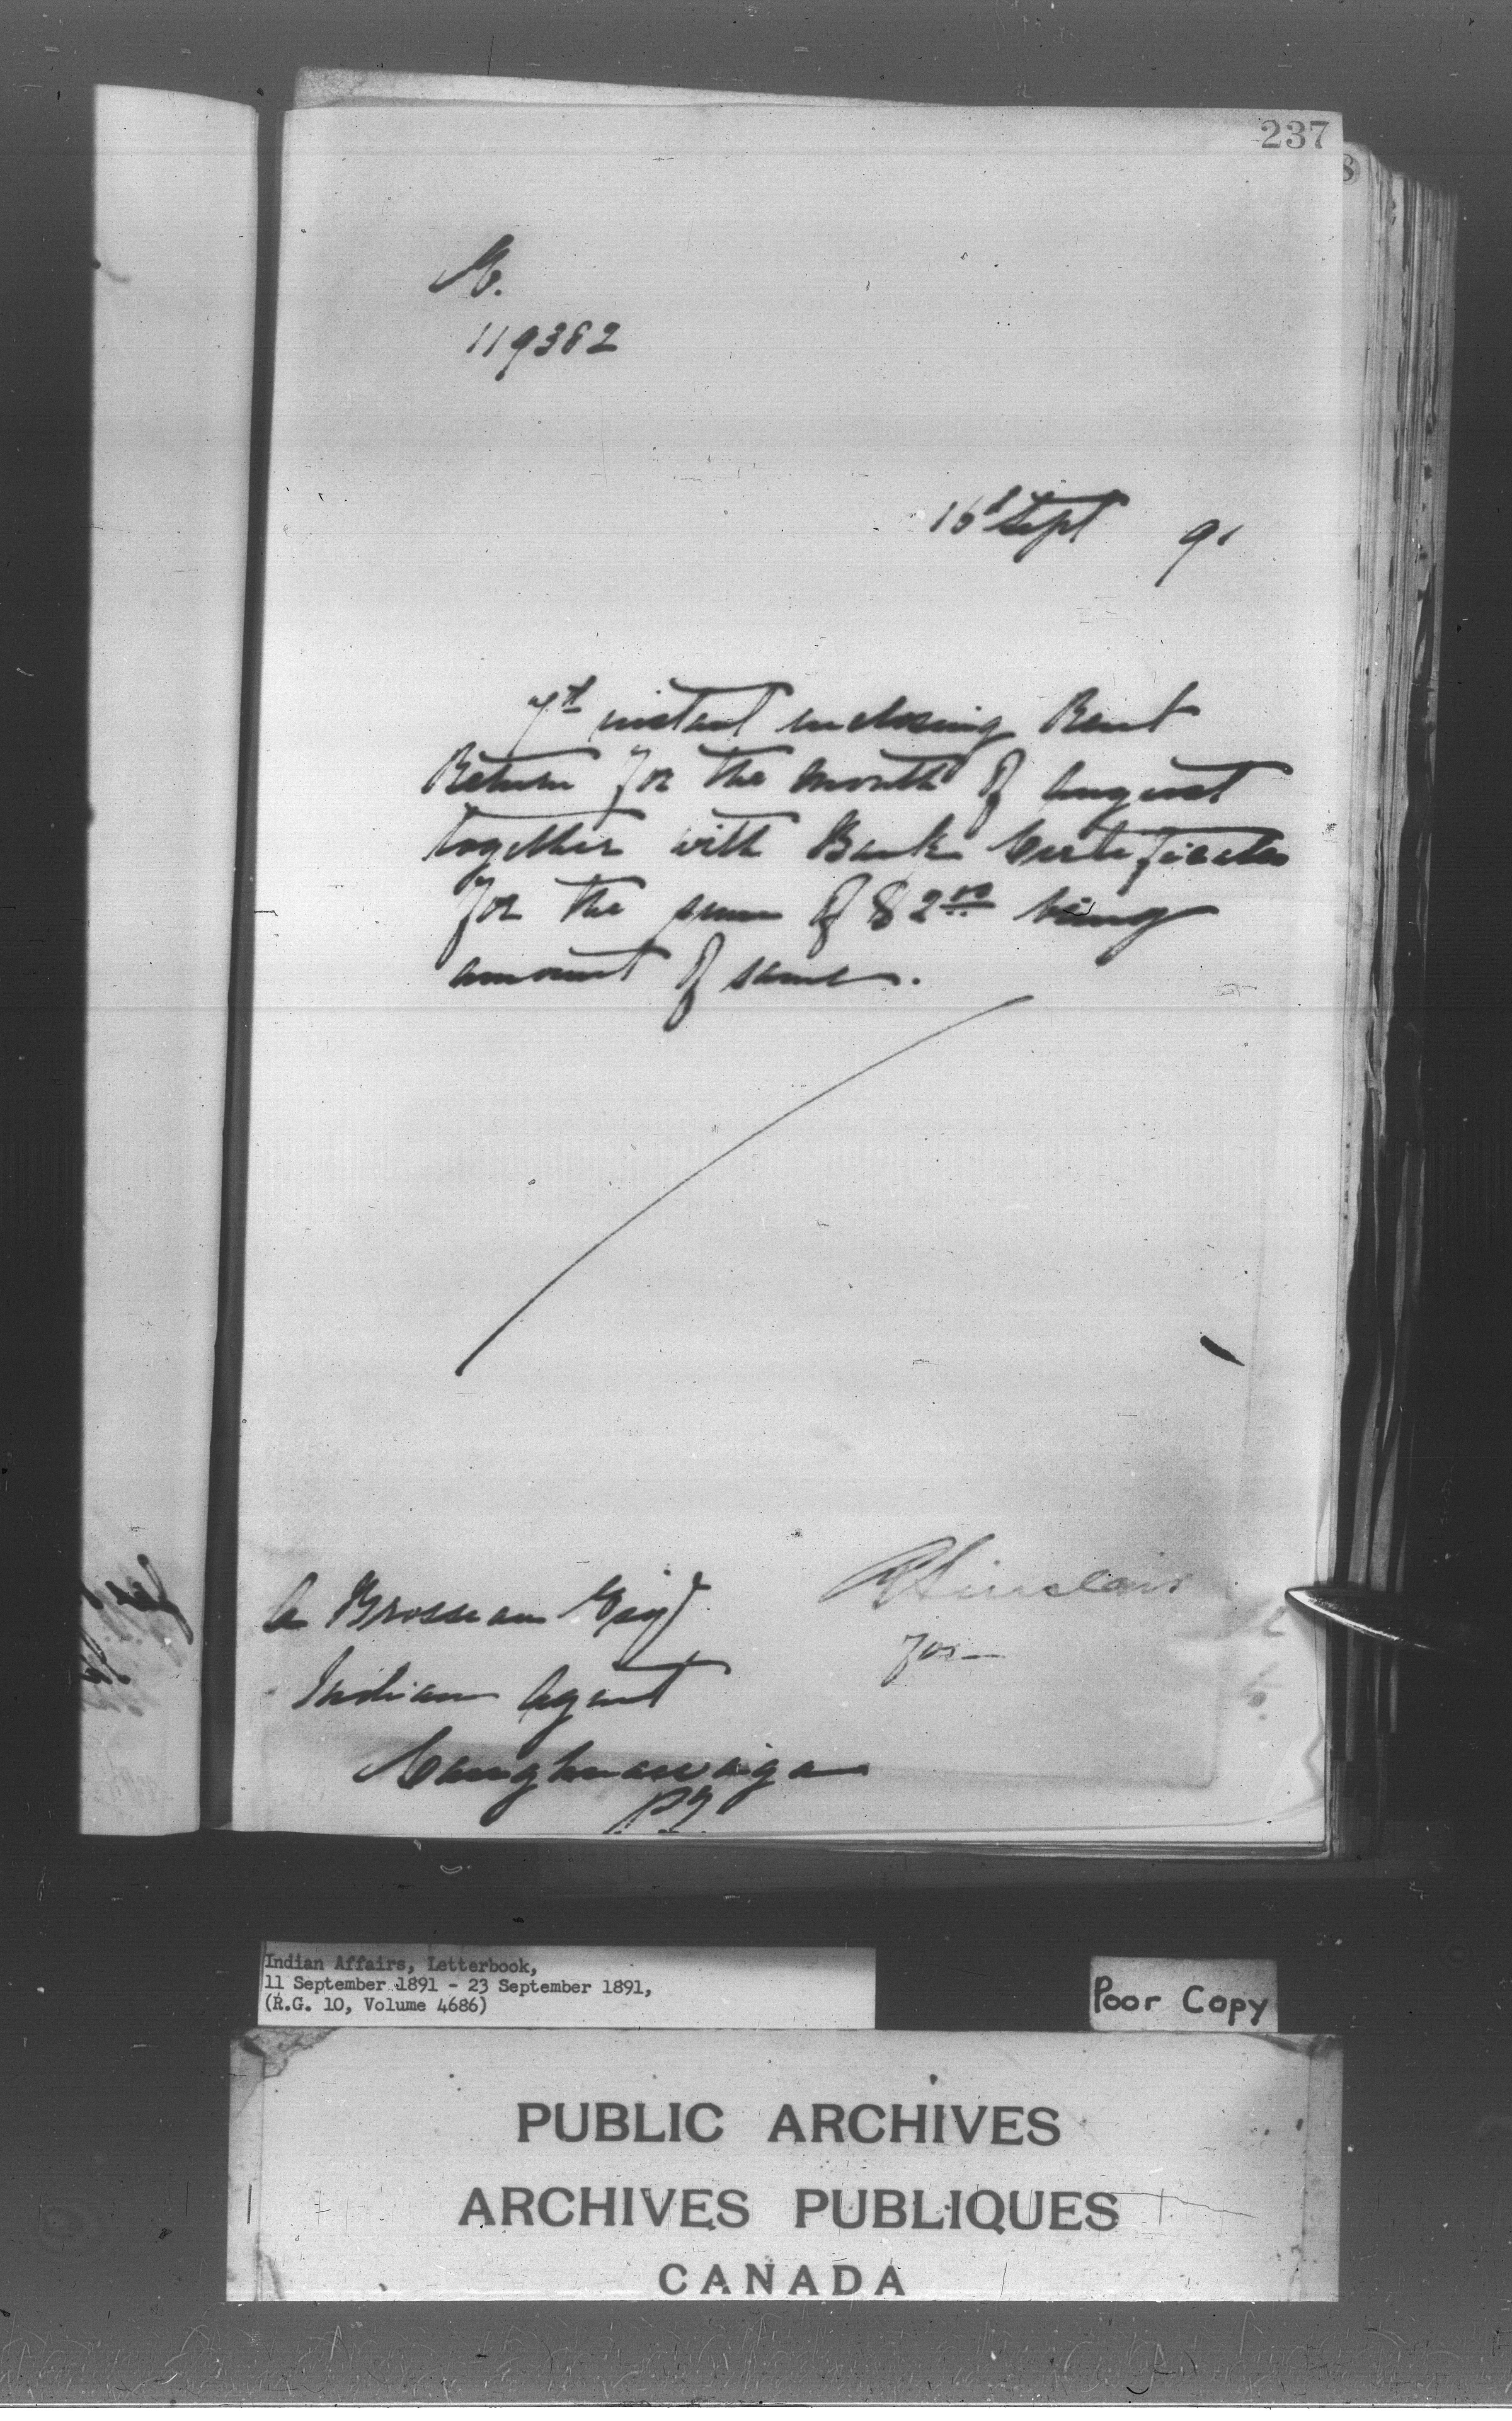 237
8
M.
119382
16th Sept 91
7th instant inclosing Rent
Return for the month of August
together with Bank Certificates
for the sum of $2.00 being
amount of same.
A Brosseau Esqr
R Sinclair
for
Indian Agent
Caughnawaga
PQ
Indian Affairs, Letterbook,
11 September 1891 - 23 September 1891,
(R.G. 10, Volume 4686)
Poor Copy
PUBLIC ARCHIVES
ARCHIVES PUBLIQUES
CANADA